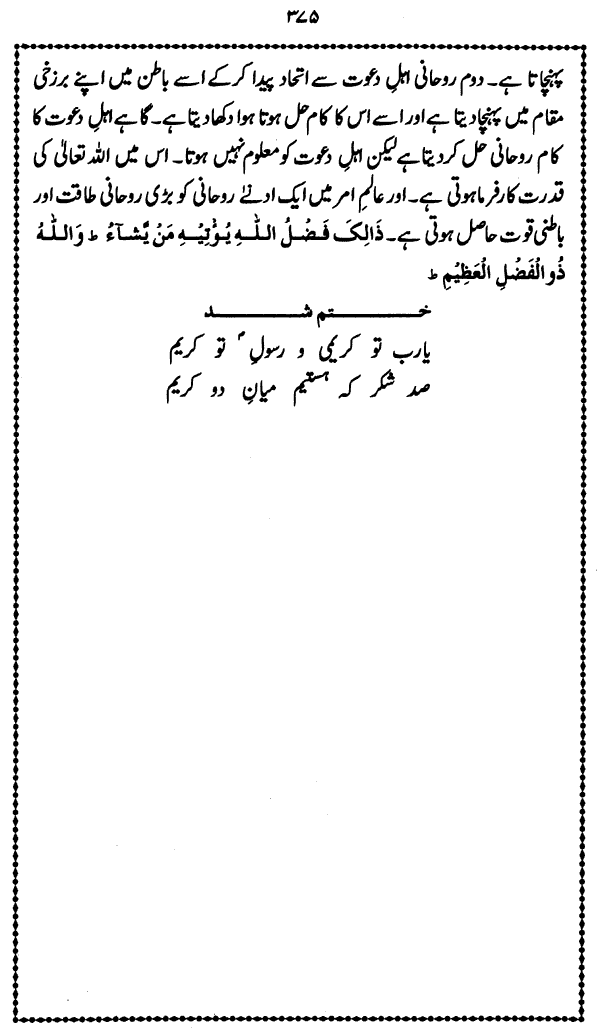 ۳۷۵
پہنچاتا ہے۔ دوم روحانی اہلِ دعوت سے اتحاد پیدا کر کے اسے باطن میں اپنے برزخی
مقام میں پہنچا دیتا ہے اور اسے اس کا کام حل ہوتا ہوا دکھا دیتا ہے۔ گاہے اہلِ دعوت کا
کام روحانی حل کر دیتا ہے لیکن اہلِ دعوت کو معلوم نہیں ہوتا۔ اس میں اللہ تعالیٰ کی
قدرت کارفرما ہوتی ہے۔ اور عالمِ امر میں ایک ادنےٰ روحانی کو بڑی روحانی طاقت اور
باطنی قوت حاصل ہوتی ہے۔ ذَالِکَ فَضْلُ اللّٰہِ یُؤْتِیْہِ مَنْ یَّشَآءُ ط وَاللّٰہُ
ذُوالْفَضْلِ الْعَظِیْمِ ط
ختم شد
یارب تو کریمی و رسولِ ؐ تو کریم
صد شکر کہ ہستیم میانِ دو کریم